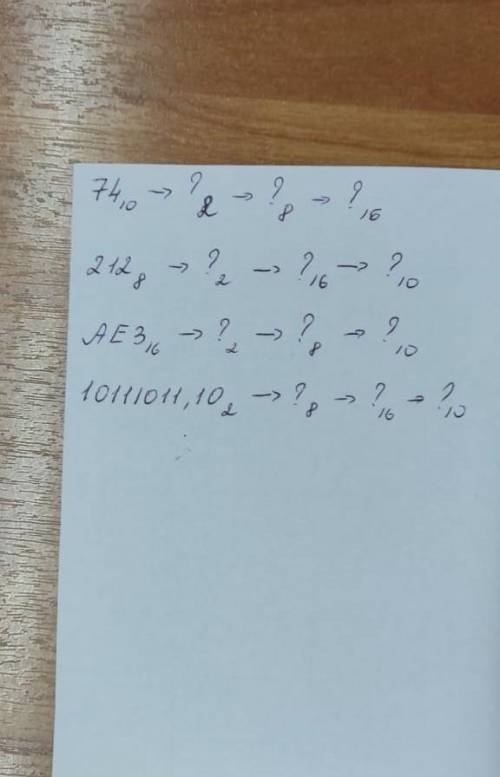 74₁₀ → ?₂ → ?₈ → ?₁₆
212₈ → ?₂ → ?₁₆ → ?₁₀
AE3₁₆ → ?₂ → ?₈ → ?₁₀
10111011,10₂ → ?₈ → ?₁₆ → ?₁₀